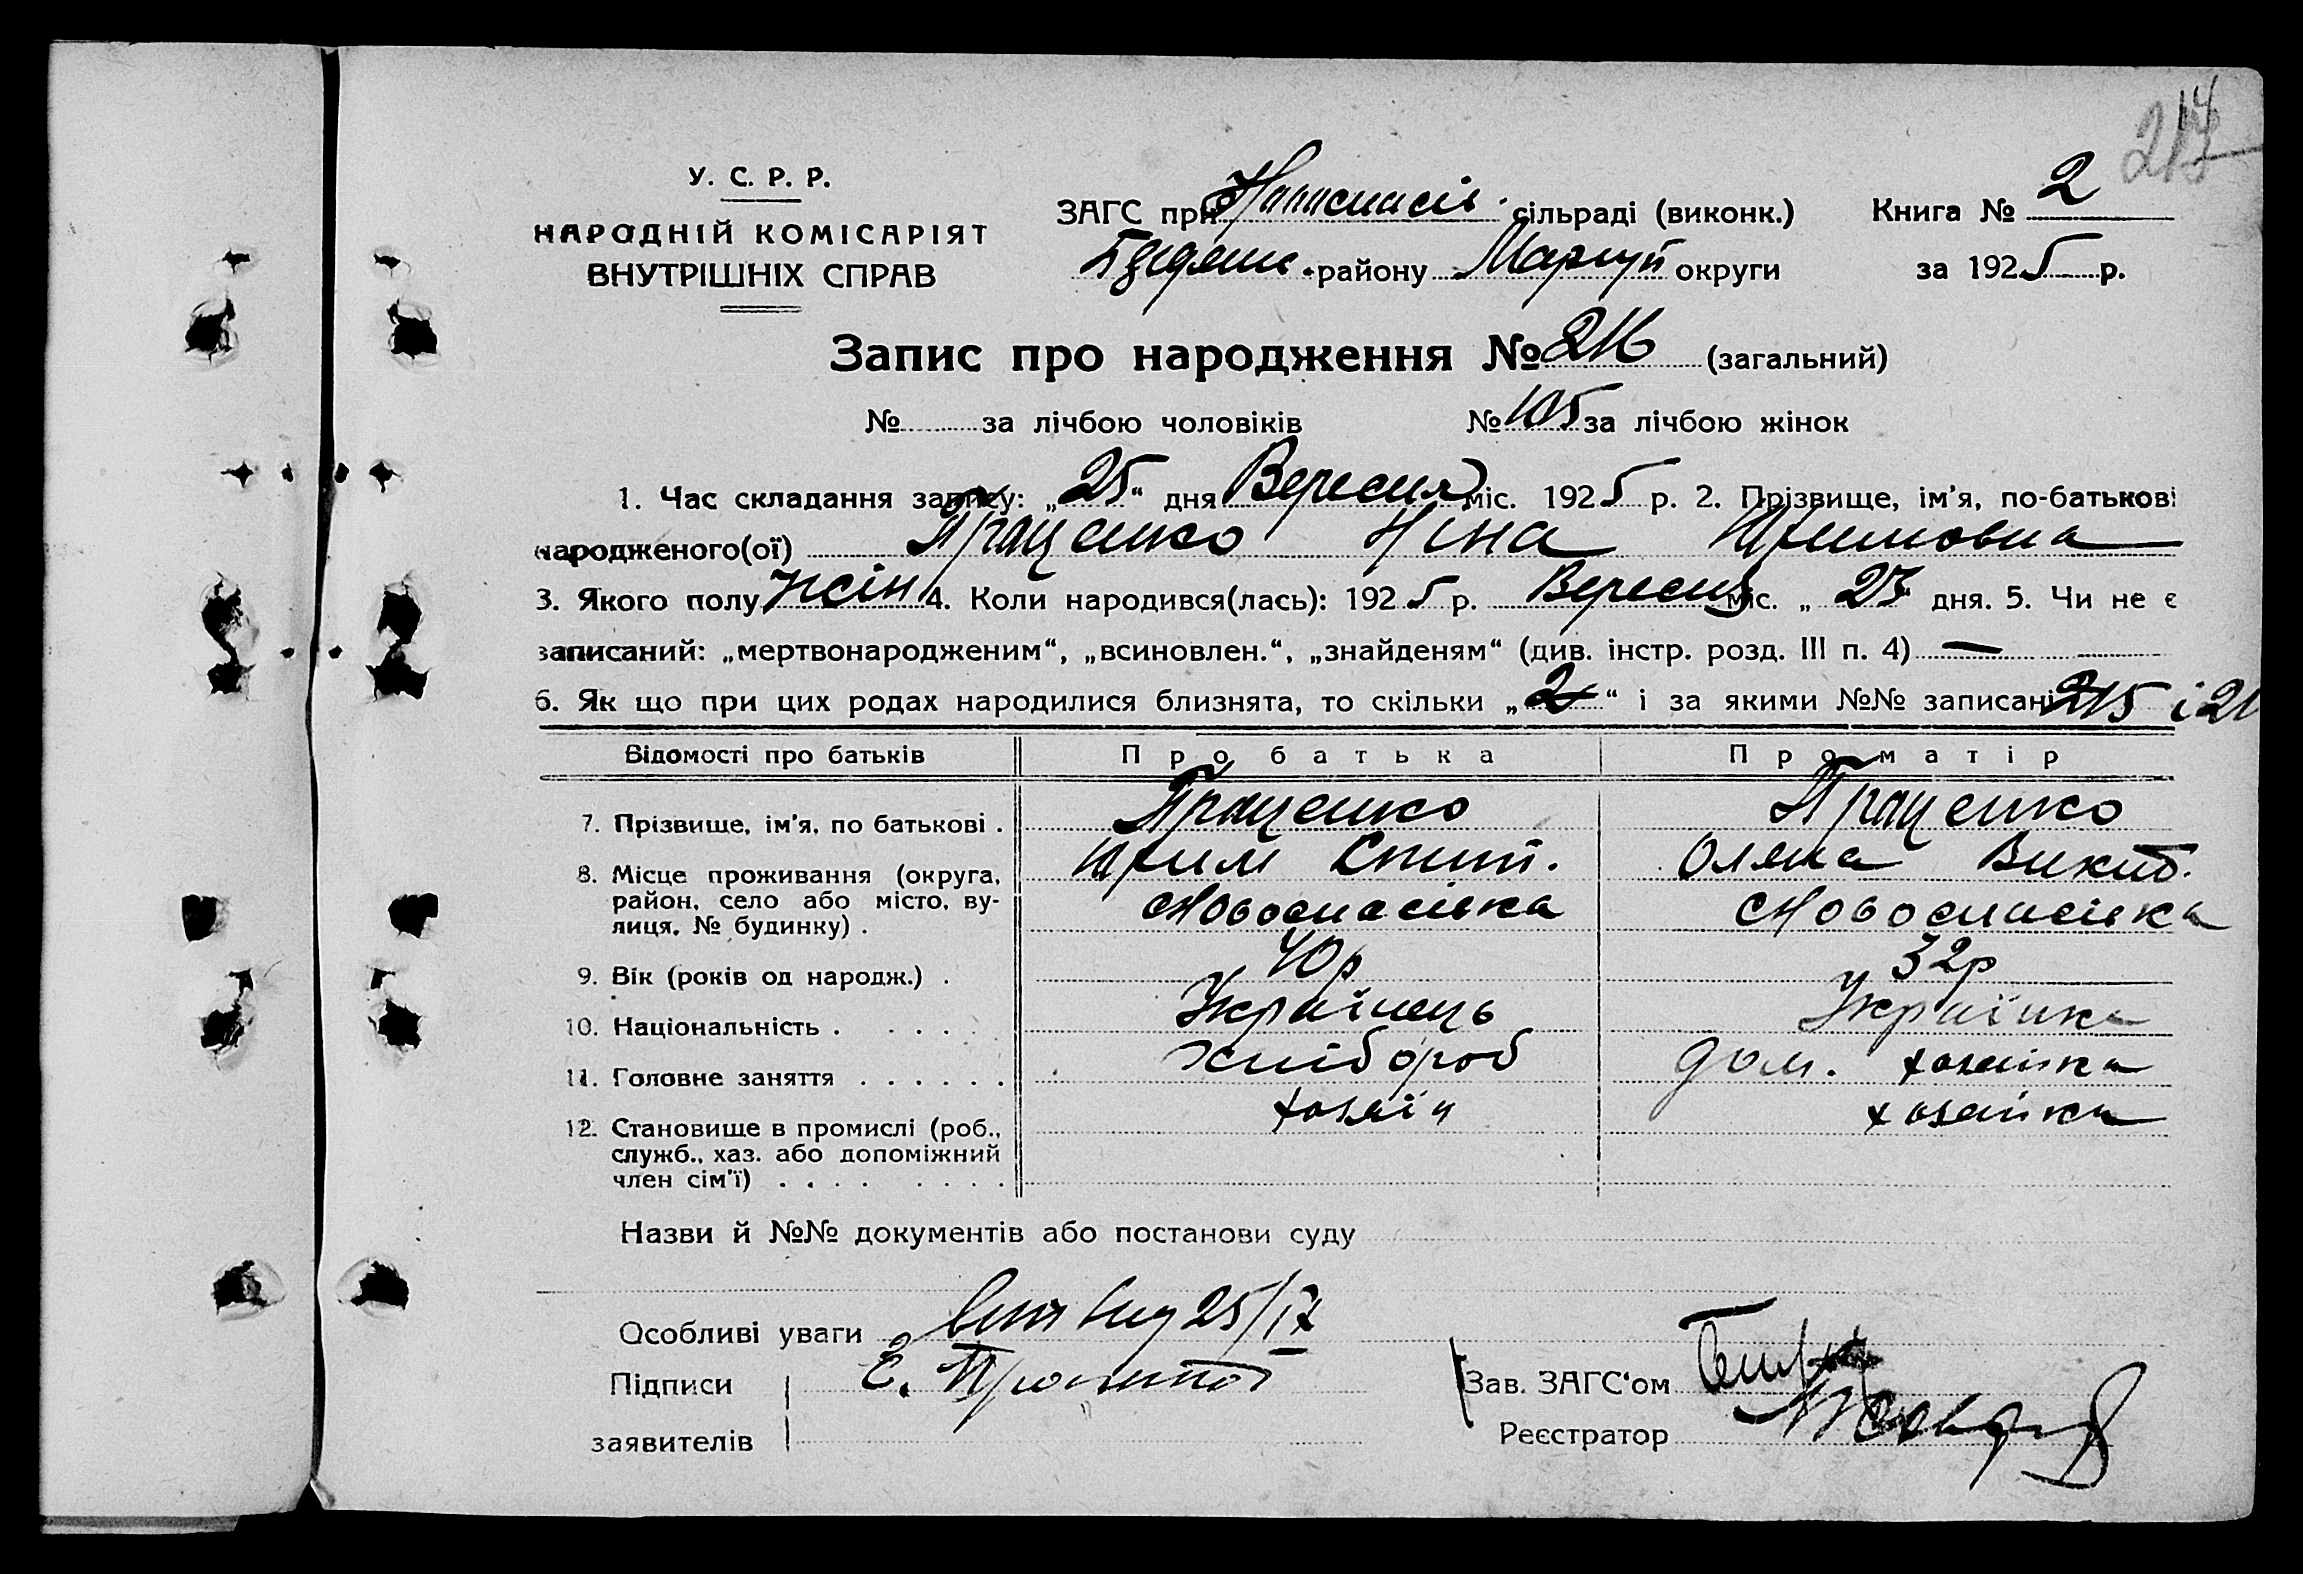 217
У. С. Р. Р.
НАРОДНІЙ КОМІСАРІЯТ
ВНУТРІШНІХ СПРАВ
ЗАГС при Новоспасів. сільраді (виконк.)
району Маріуп округи
Книга № 2
за 1925 р.
Запис про народження № 216 (загальний)
№ за лічбою чоловіків № 105 за лічбою жінок
1. Час складання запису: „25“ дня Вересня міс. 1925 р. 2. Прізвище, ім'я, по-батькові
народженого(ої) Праценко Ніна
3. Якого полу жін 4. Коли народився(лась): 1925 р. Вересня міс. „25“ дня. 5. Чи не є
записаний: „мертвонародженим“, „всиновлен.“, „знайденям“ (див. інстр. розд. III п. 4) —
6. Як що при цих родах народилися близнята, то скільки „2“ і за якими №№ записані 215 і 21
Відомості про батьків Про батька Про матір
7. Прізвище, ім'я, по батькові . Праценко Праценко
Оляна Викт.
8. Місце проживання (округа, район, село або місто, вулиця, № будинку) . с Новоспасівка с Новоспасівка
9. Вік (років од народж.) . 40р 32р
10. Національність . . . . . Українець Українка
11. Головне заняття . . . . . . Хлібороб дом. хазяйка
12. Становище в промислі (роб., служб., хаз. або допоміжний член сім'ї) . . . . . . . . хазяїн хазяйка
Назви й №№ документів або постанови суду
Особливі уваги 25/IX
Підписи
заявителів
Зав. ЗАГС'ом
Реєстратор